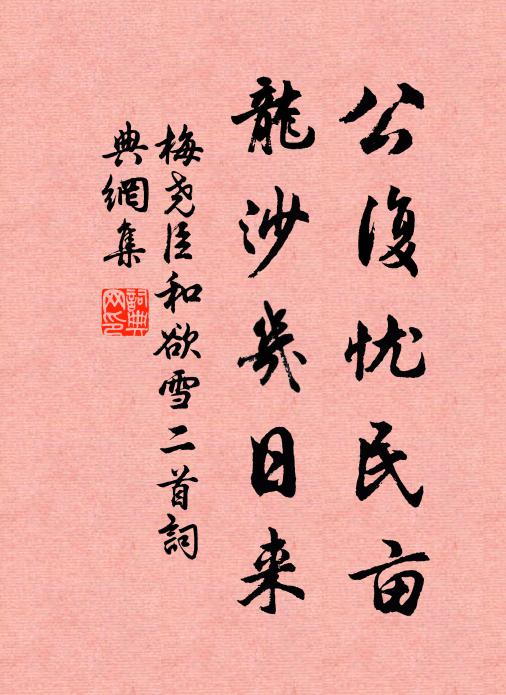 公復忧民亩
龍沙幾日来
梅尧臣和欲雪二首詞
典網集
詞典
网印